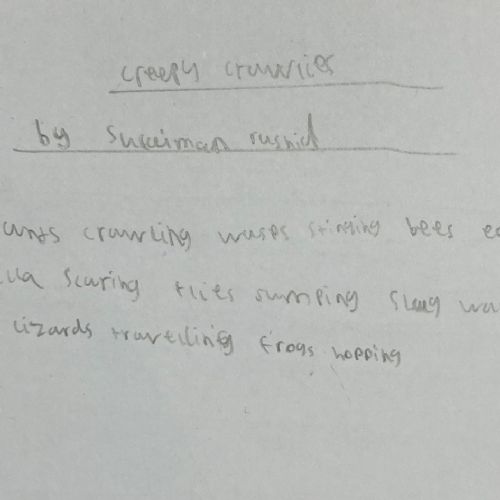 creepy crawlies
by Sulaiman rashid
ants crawling wasps stinging bees
scaring flies jumping slug
lizards travelling frogs hopping